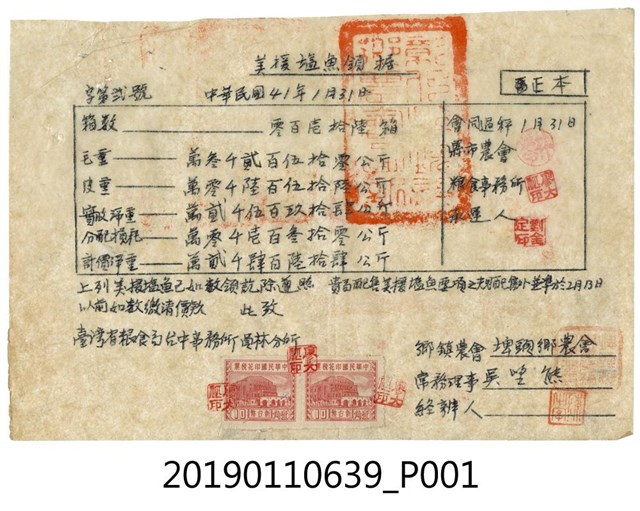 美援塩魚領據
正本
字第貳號
中華民國41年1月31日
箱数 零百壱拾陸箱
毛重 萬叁千貳百伍拾零公斤
皮重 萬零千陸百伍拾陸公斤
實收淨重 萬貳千伍百玖拾肆公斤
分配損耗 萬零千壱百叁拾零公斤
計價淨重 萬貳千肆百陸拾肆公斤
會同過秤 1月31日
縣市農會
粮食事務所
承運人
上列美援塩魚已如數領訖除遵照 貴局配售美援塩魚要項之規配售外並準於2月13日
以前如數繳清價款 此致
臺灣省粮食局台中事務所員林分所
鄉鎮農會 埤頭鄉農會
常務理事 吳
經辦人
中華民國印花稅票
20190110639_P001